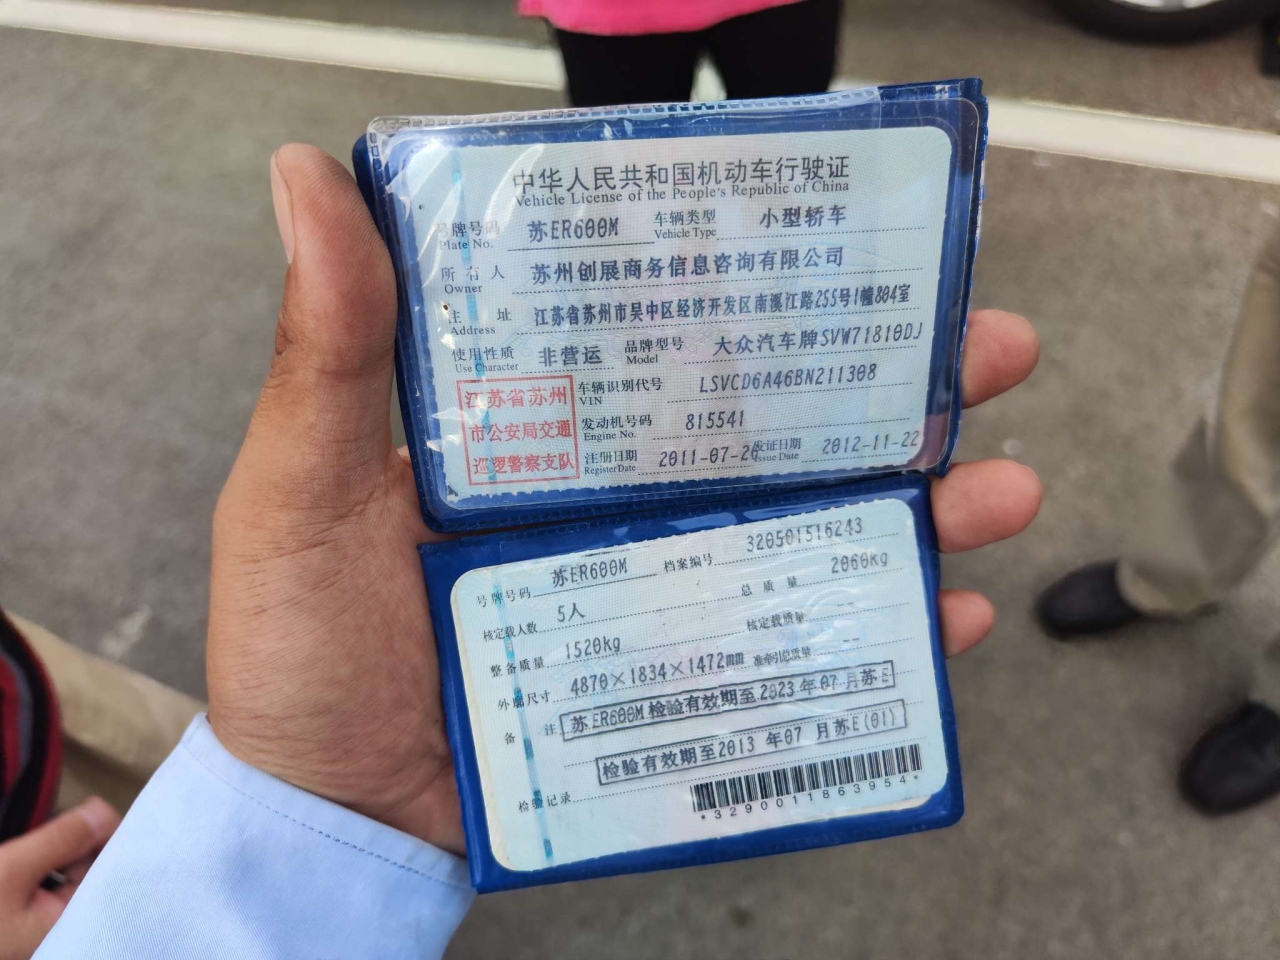 中华人民共和国机动车行驶证
Vehicle License of the People's Republic of China
号牌号码 苏ER600M 车辆类型 小型轿车
Plate No. Vehicle Type
所有人 苏州创展商务信息咨询有限公司
Owner
住址 江苏省苏州市吴中区经济开发区南溪江路255号1幢804室
Address
使用性质 非营运 品牌型号 大众汽车牌SVW71810DJ
Use Character Model
江苏省苏州
市公安局交通
巡逻警察支队
车辆识别代号 LSVCD6A46BN211308
VIN
发动机号码 815541
Engine No.
注册日期 2011-07-26 发证日期 2012-11-22
Register Date Issue Date
号牌号码 苏ER600M 档案编号 320501516243
核定载人数 5人 总质量 2060kg
整备质量 1520kg 核定载质量 --
外廓尺寸 4870×1834×1472mm 准牵引总质量 --
备注 苏ER600M检验有效期至2023年07月苏E
检验有效期至2013年07月苏E(01)
检验记录
*3290011863954*